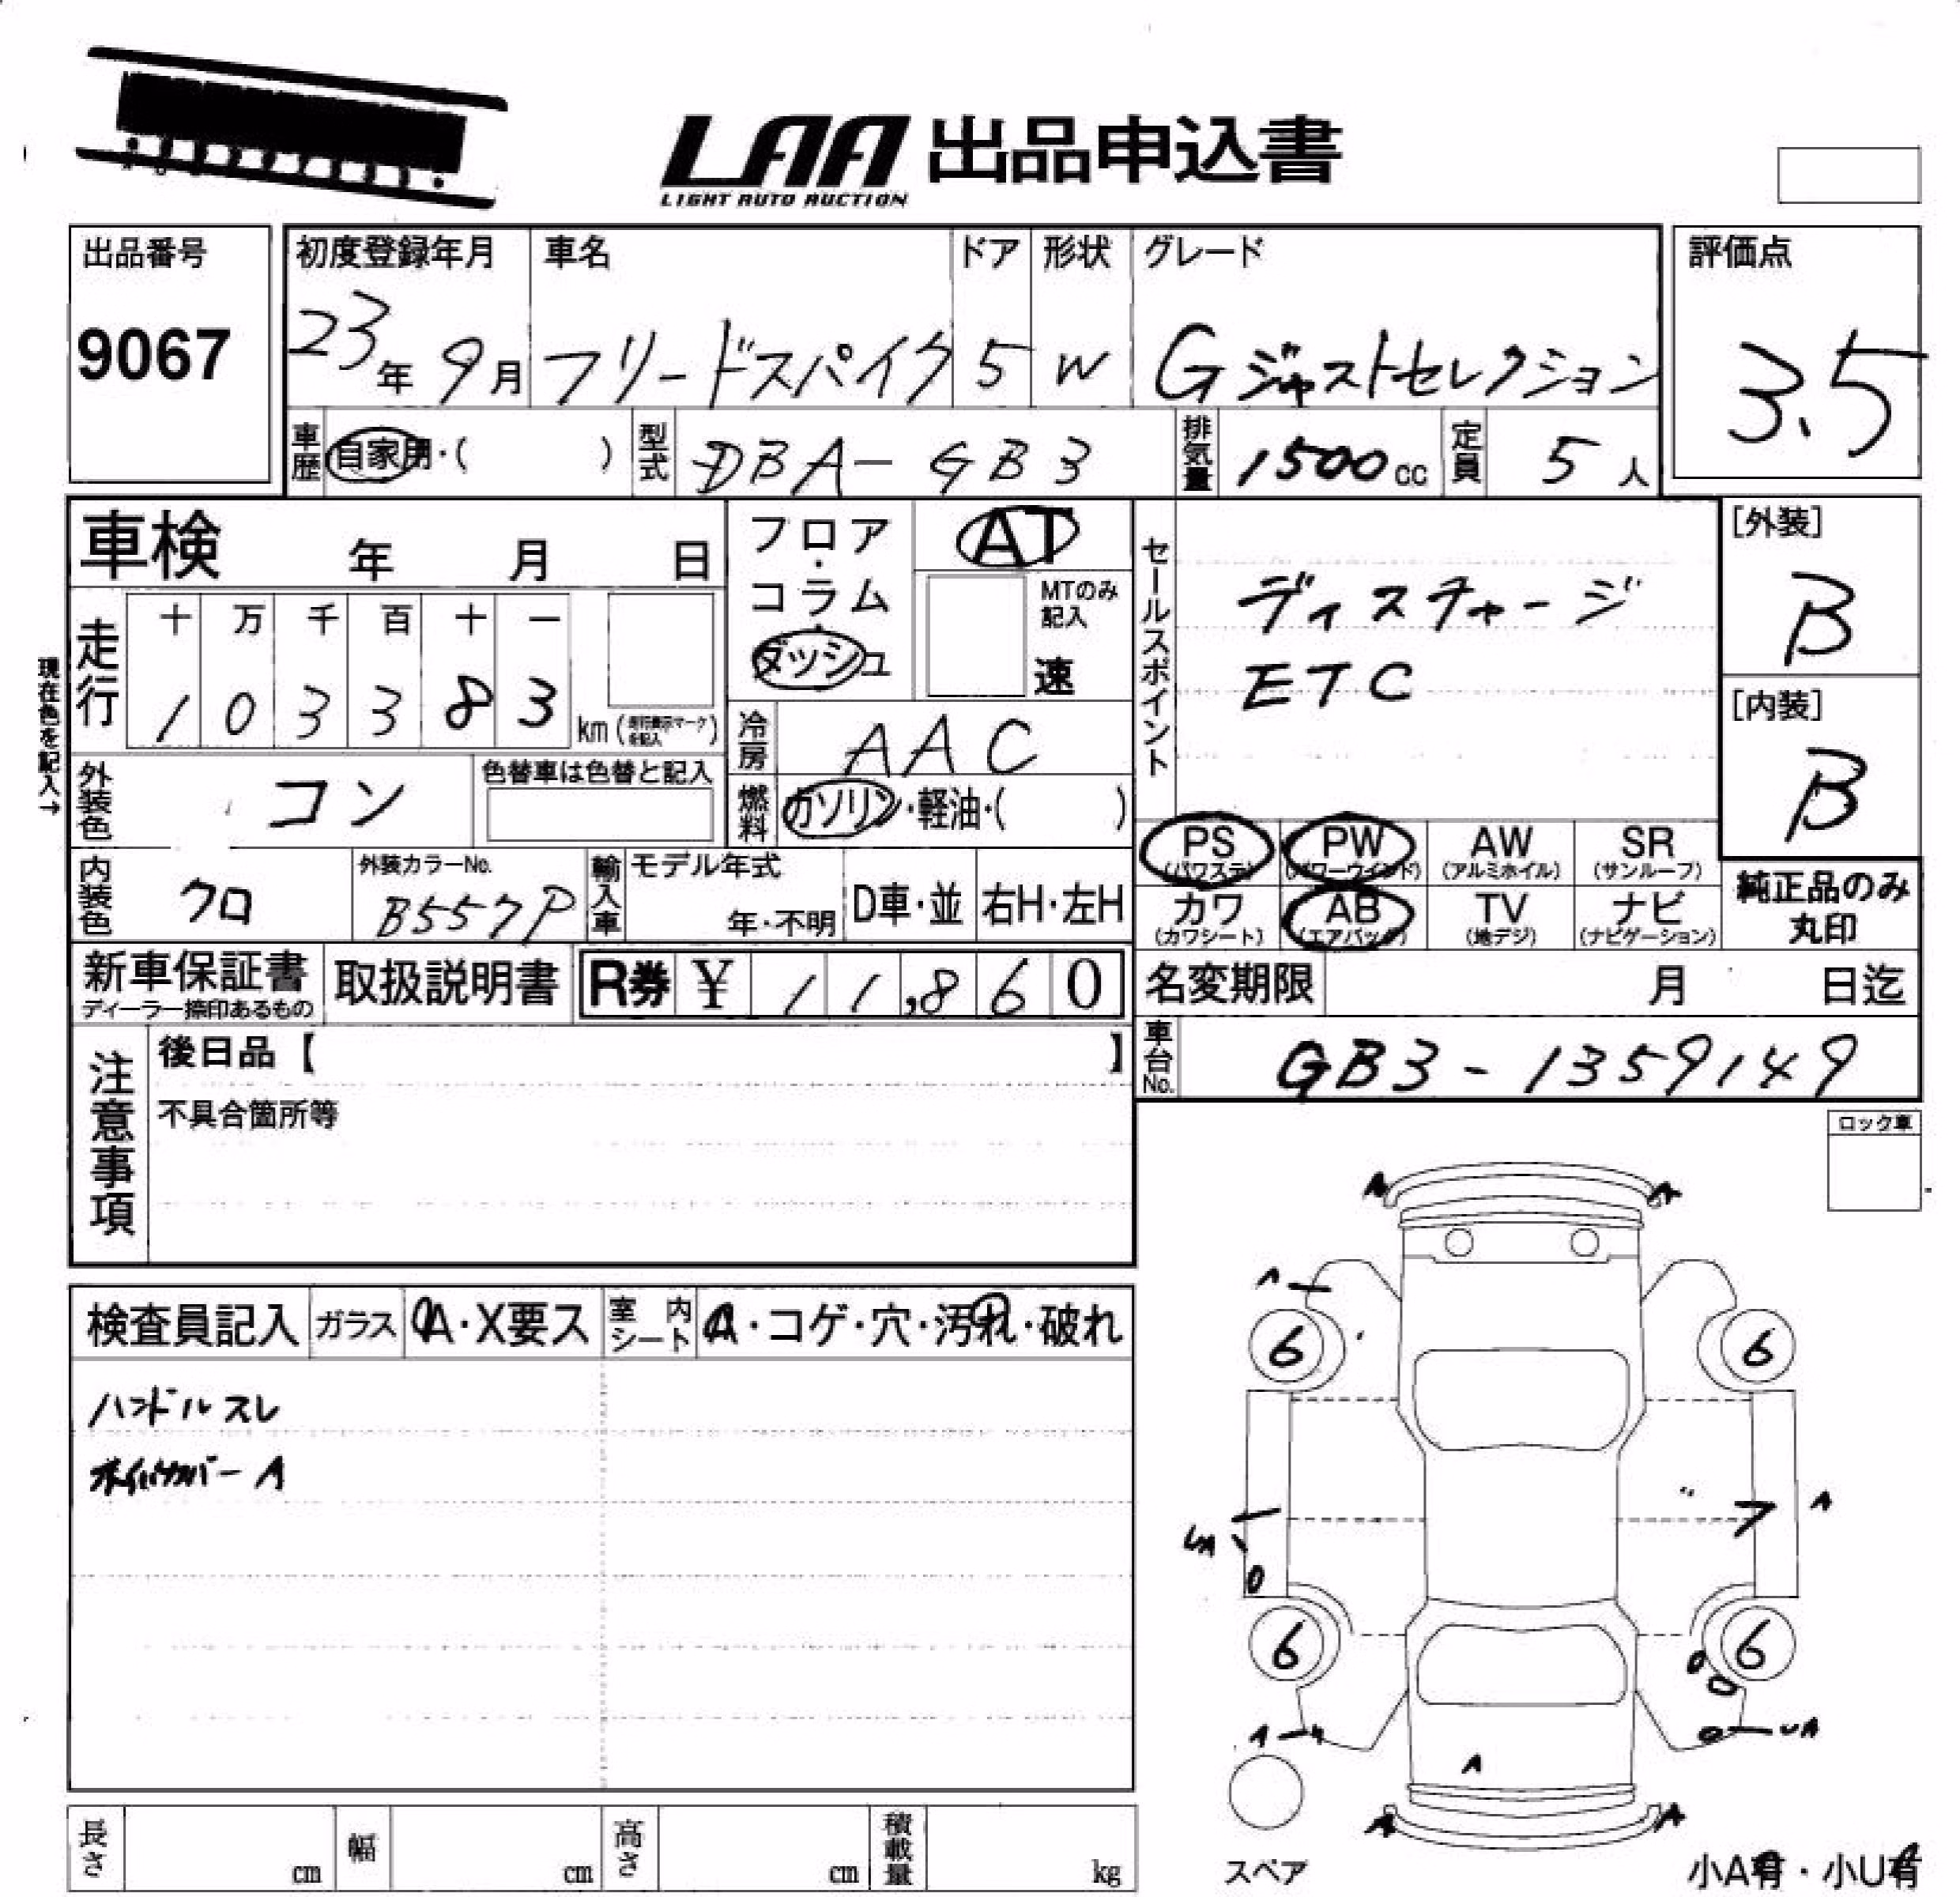 LAA 出品申込書
LIGHT AUTO AUCTION
出品番号
9067
初度登録年月
23年 9月
車名
フリードスパイク
ドア
5
形状
W
グレード
Gジャストセレクション
評価点
3.5
車歴 自家用・( )
型式 DBA-GB3
排気量 1500cc
定員 5人
車検 年 月 日
フロア・コラム・ダッシュ
AT
MTのみ記入
速
セールスポイント
ディスチャージ
ETC
[外装]
B
[内装]
B
現在色を記入→
走行
十 万 千 百 十 一
1 0 3 3 8 3 km
冷房 AAC
外装色 コン
色替車は色替と記入
燃料 ガソリン・軽油・( )
PS (パワステ)
PW (パワーウインド)
AW (アルミホイル)
SR (サンルーフ)
カワ (カワシート)
AB (エアバッグ)
TV (地デジ)
ナビ (ナビゲーション)
純正品のみ
丸印
内装色 クロ
外装カラーNo.
B557P
輸入車
モデル年式
年・不明
D車・並
右H・左H
新車保証書
ディーラー捺印あるもの
取扱説明書
R券 ¥ 11,860
名変期限 月 日迄
車台No. GB3-1359149
注意事項
後日品【 】
不具合箇所等
ロック車
検査員記入
ガラス A・X要ス
室内シート A・コゲ・穴・汚れ・破れ
ハンドルスレ
ホイルカバーA
A A
A
6 6
A
6 6
A UA
A
A A
スペア
小A有・小U有
長さ cm
幅 cm
高さ cm
積載量 kg